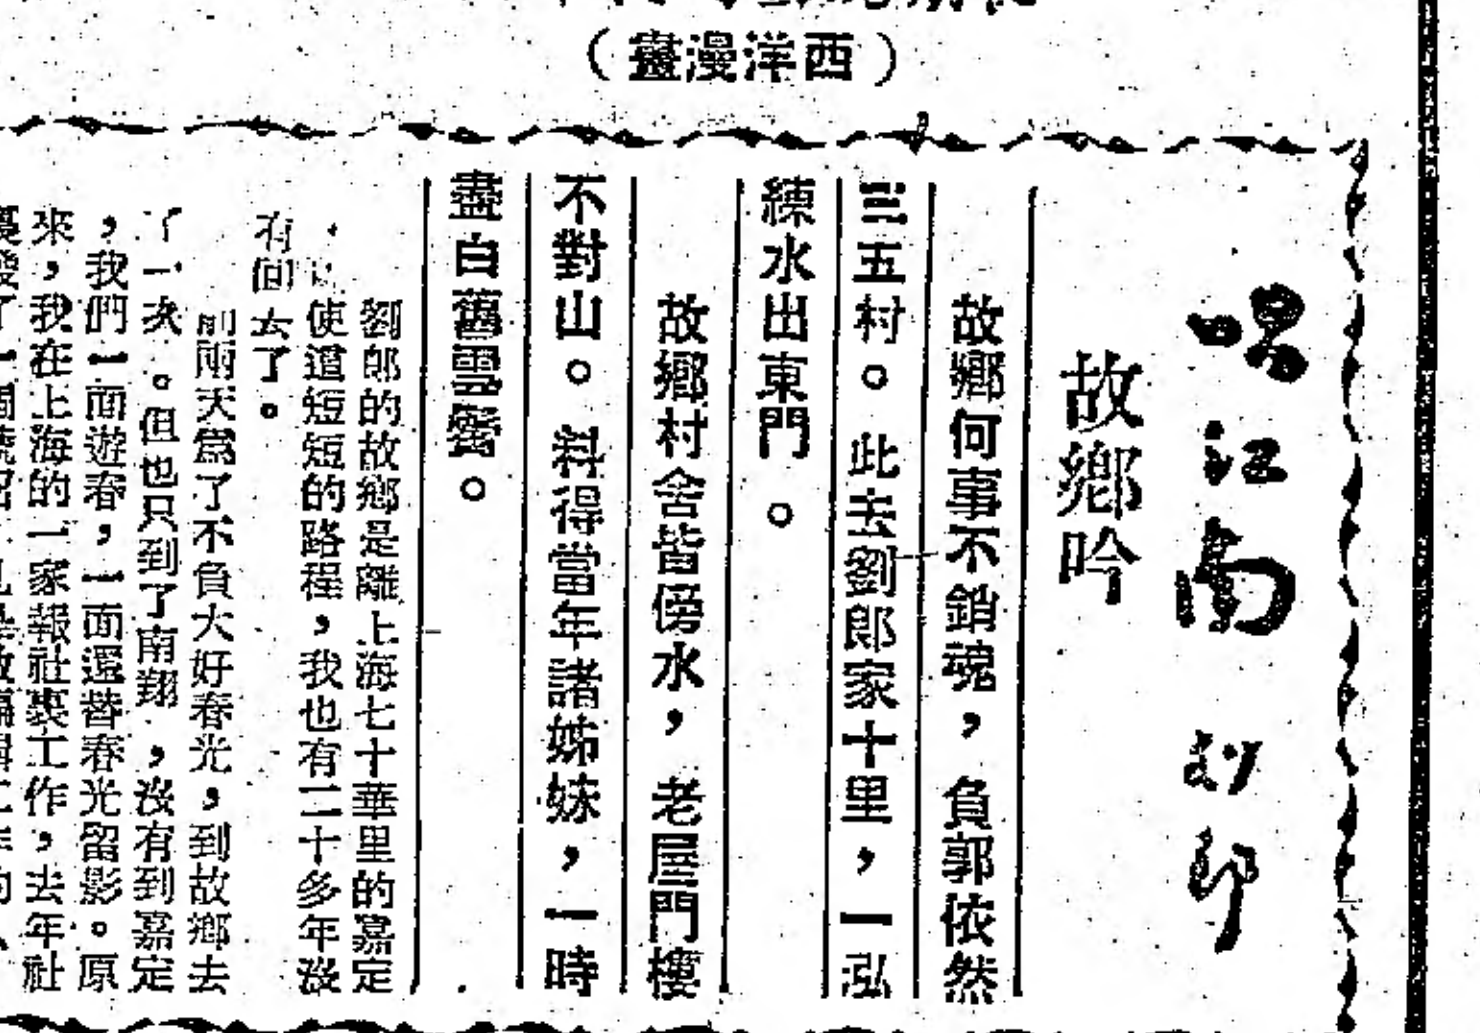 （西洋漫畫）
唱江南 劉郎
故鄉吟
故鄉何事不銷魂，負郭依然
三五村。此去劉郎家十里，一泓
練水出東門。
故鄉村舍皆傍水，老屋門樓
不對山。料得當年諸姊妹，一時
盡白舊雲鬟。
劉郎的故鄉是離上海七十華里的嘉定
，使這短短的路程，我也有二十多年沒
有回去了。
前兩天為了不負大好春光，到故鄉去
了一次。但也只到了南翔，沒有到嘉定
，我們一面遊春，一面還替春光留影。原
來，我在上海的一家報社裏工作，去年社